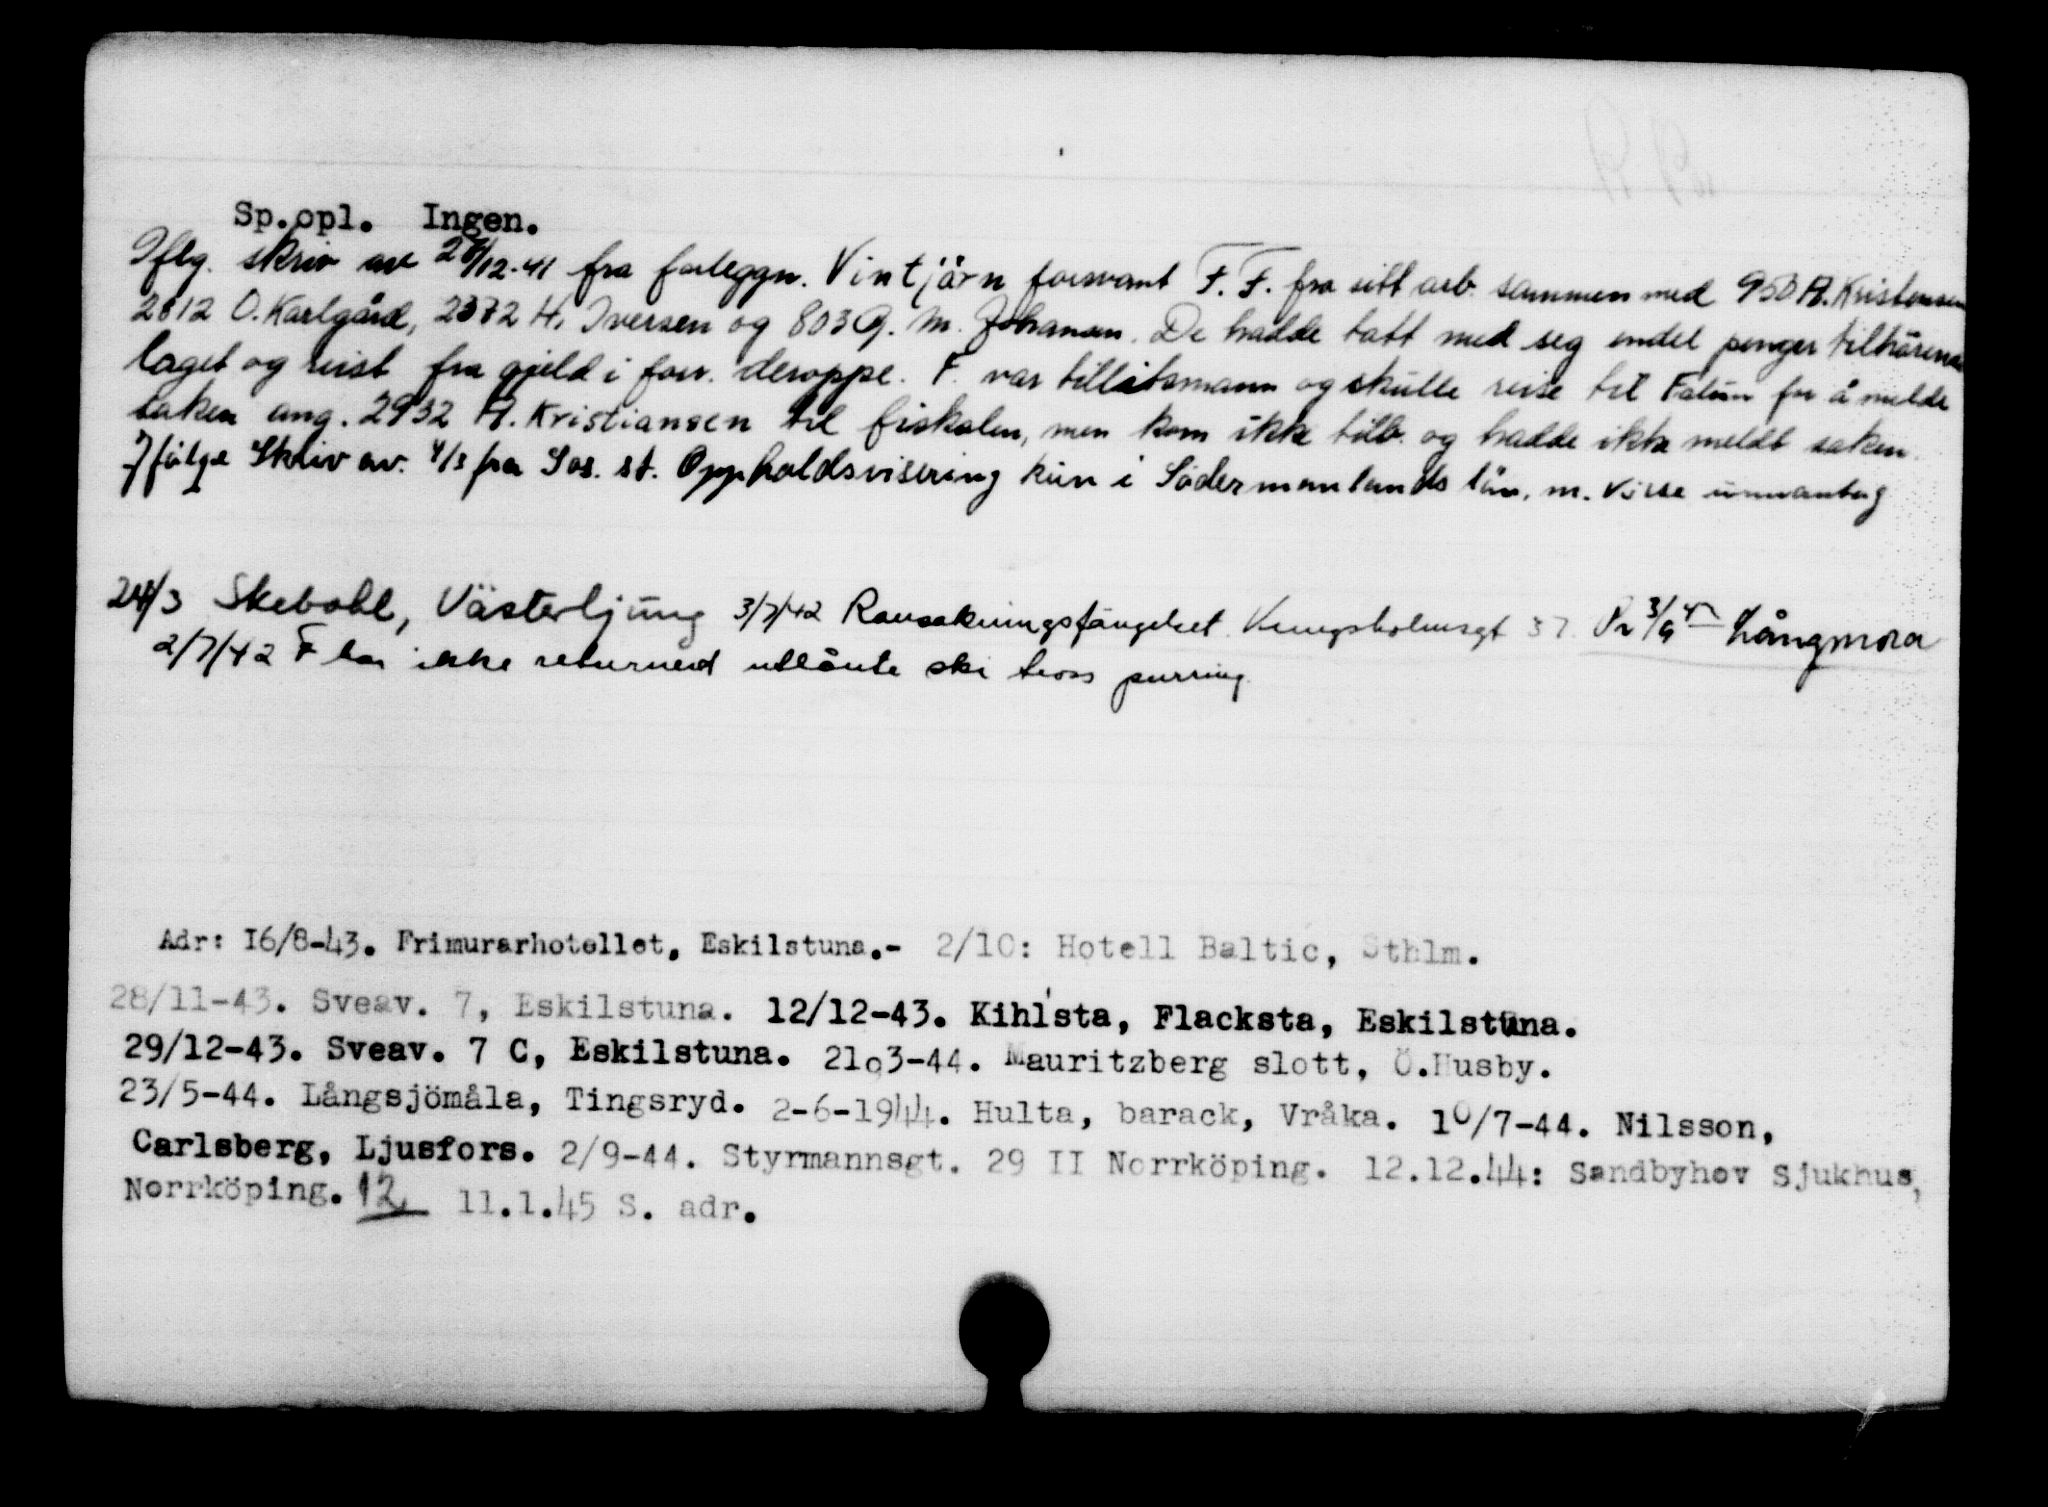 Sp.opl. Ingen.
Iflg. skriv av 28/12-41 fra forleggn. Vintjärn forsvant F. F. fra sitt arb. sammen med 950 A. Kristensen
2812 O. Karlgård, 2372 H. Iversen og 803 G. M. Johansen. De hadde tatt med seg endel penger tilhørende
laget og reist fra gjeld i forr. deroppe. F. var tillitsmann og skulle reise til Falun for å melde
saken ang. 2932 A. Kristiansen til fiskalen, men kom ikke tilb. og hadde ikke meldt saken.
Ifølge Skriv av. 4/3 fra Sos. st. Oppholdsvisering kun i Södermanlands län, m. visse unnantag
24/3 Skebohl, Västerljung 3/7/42 Ransakningsfängelset Kungsholmsgt 37. Pr 3/9 42 Långmora
2/7/42 F har ikke returnert utlånte ski tross purring.
Adr: I6/8-43. Frimurarhotellet, Eskilstuna.- 2/10: Hotell Baltic, Sthlm.
28/11-43. Sveav. 7, Eskilstuna. 12/12-43. Kihl'sta, Flacksta, Eskilstuna.
29/12-43. Sveav. 7 C, Eskilstuna. 21o3-44. Mauritzberg slott, Ö.Husby.
23/5-44. Långsjömåla, Tingsryd. 2-6-1944. Hulta, barack, Vråka. 10/7-44. Nilsson,
Carlsberg, Ljusfors. 2/9-44. Styrmannsgt. 29 II Norrköping. 12.12.44: Sandbyhov Sjukhus,
Norrköping. 12 11.1.45 S. adr.